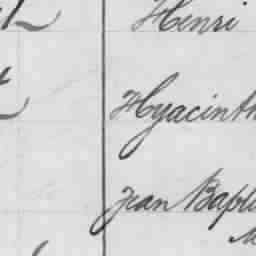 Henri
Hyacinth
Jean Bapti